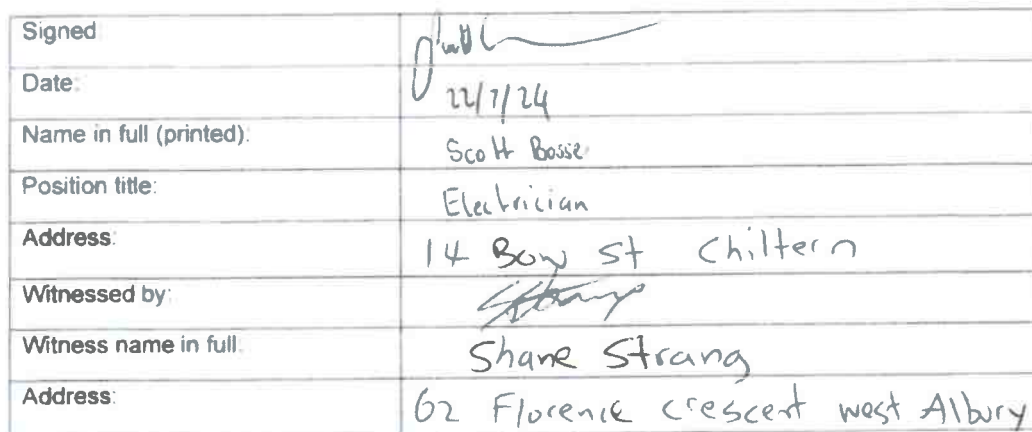 Signed
Date: 22/7/24
Name in full (printed): Scott Bosse
Position title: Electrician
Address: 14 Bow St Chiltern
Witnessed by:
Witness name in full: Shane Strang
Address: 62 Florence crescent west Albury